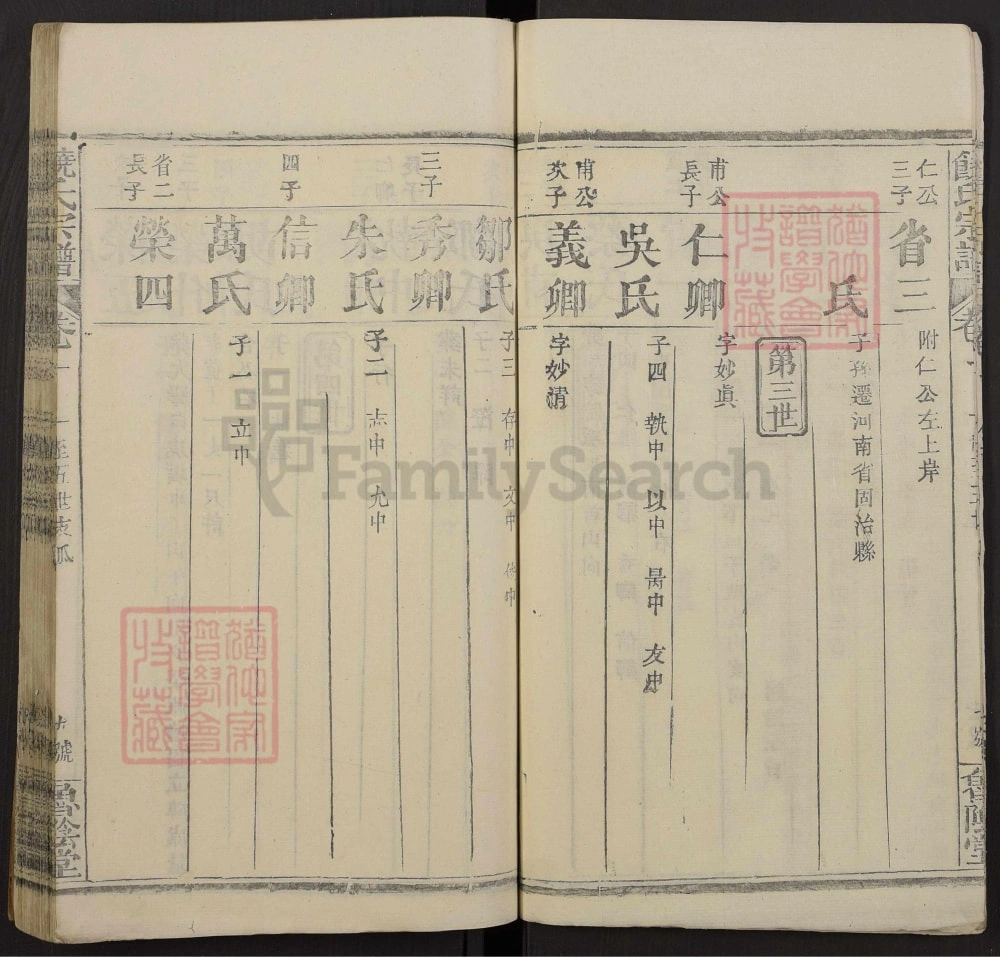 仁公三子
省三
附仁公左上岸
氏
子孫遷河南省固治縣
第三世
甫公長子
仁卿
字妙真
吳氏
子四 執中 以中 昺中 友中
甫公次子
義卿
字妙清
鄒氏
子三 存中 文中
三子
秀卿
朱氏
子二 志中 允中
四子
信卿
萬氏
子一 立中
省二長子
榮四
饒氏宗譜
卷一
一至五世支派
號
饒氏宗譜
FamilySearch
譜學會
特藏
譜學會
特藏